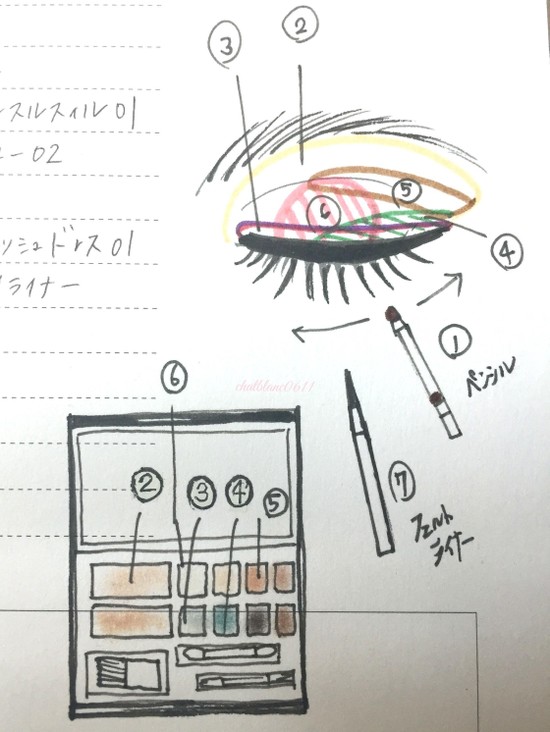 ③
②
スルスィル 01
ー02
⑤
⑥
④
ッシュドレス 01
ライナー
①
ペンシル
⑥
chulblanc0611
② ③ ④ ⑤
⑦
フェルト
ライナー